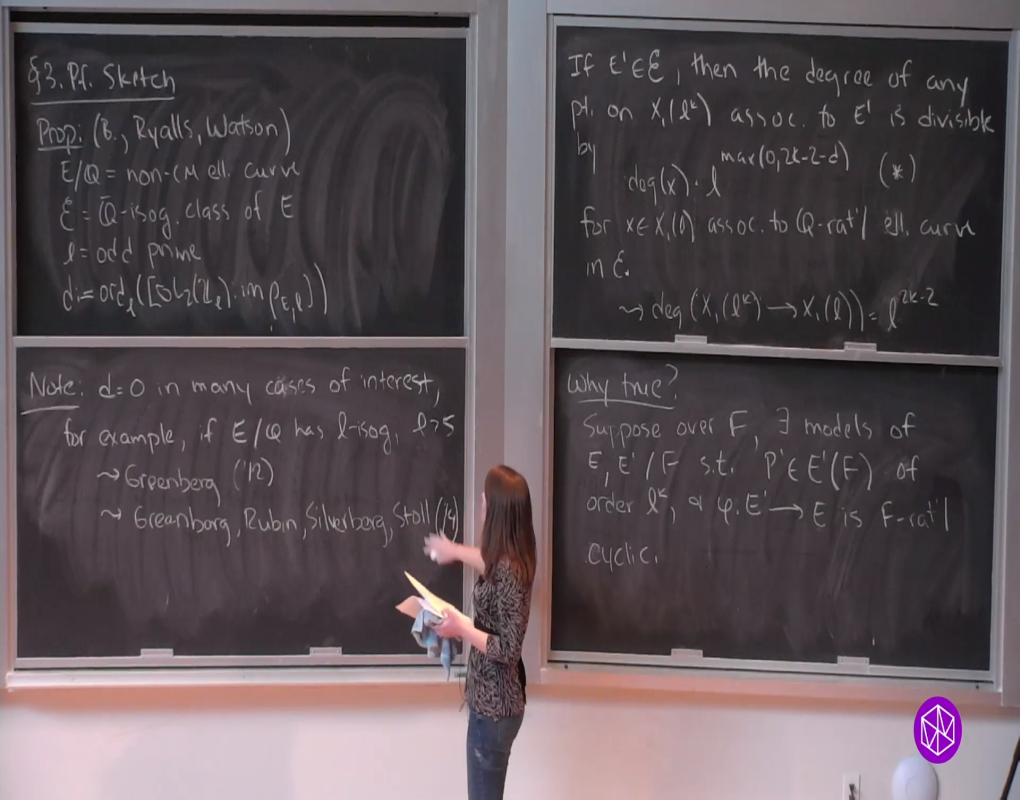 §3. Pf. Sketch
Prop: (B., Ryalls, Watson)
E/Q = non-CM ell. curve
ℰ = Q̄-isog. class of E
ℓ = odd prime
d:= ord_ℓ([GL₂(ℤ_ℓ): im ρ_{E,ℓ^∞}])
Note: d=0 in many cases of interest,
for example, if E/Q has ℓ-isog, ℓ>5
⇝ Greenberg ('12)
⇝ Greenberg, Rubin, Silverberg, Stoll ('14)
If E'∈ℰ, then the degree of any
pt. on X₁(ℓᵏ) assoc. to E' is divisible
by
deg(x)·ℓ^{max(0,2k-2-d)} (*)
for x∈X₁(ℓ) assoc. to Q-rat'l ell. curve
in ℰ.
⇝ deg(X₁(ℓᵏ)→X₁(ℓ)) = ℓ^{2k-2}
Why true?
Suppose over F, ∃ models of
E, E'/F s.t. P'∈E'(F) of
order ℓᵏ, & φ: E'→E is F-rat'l
cyclic.